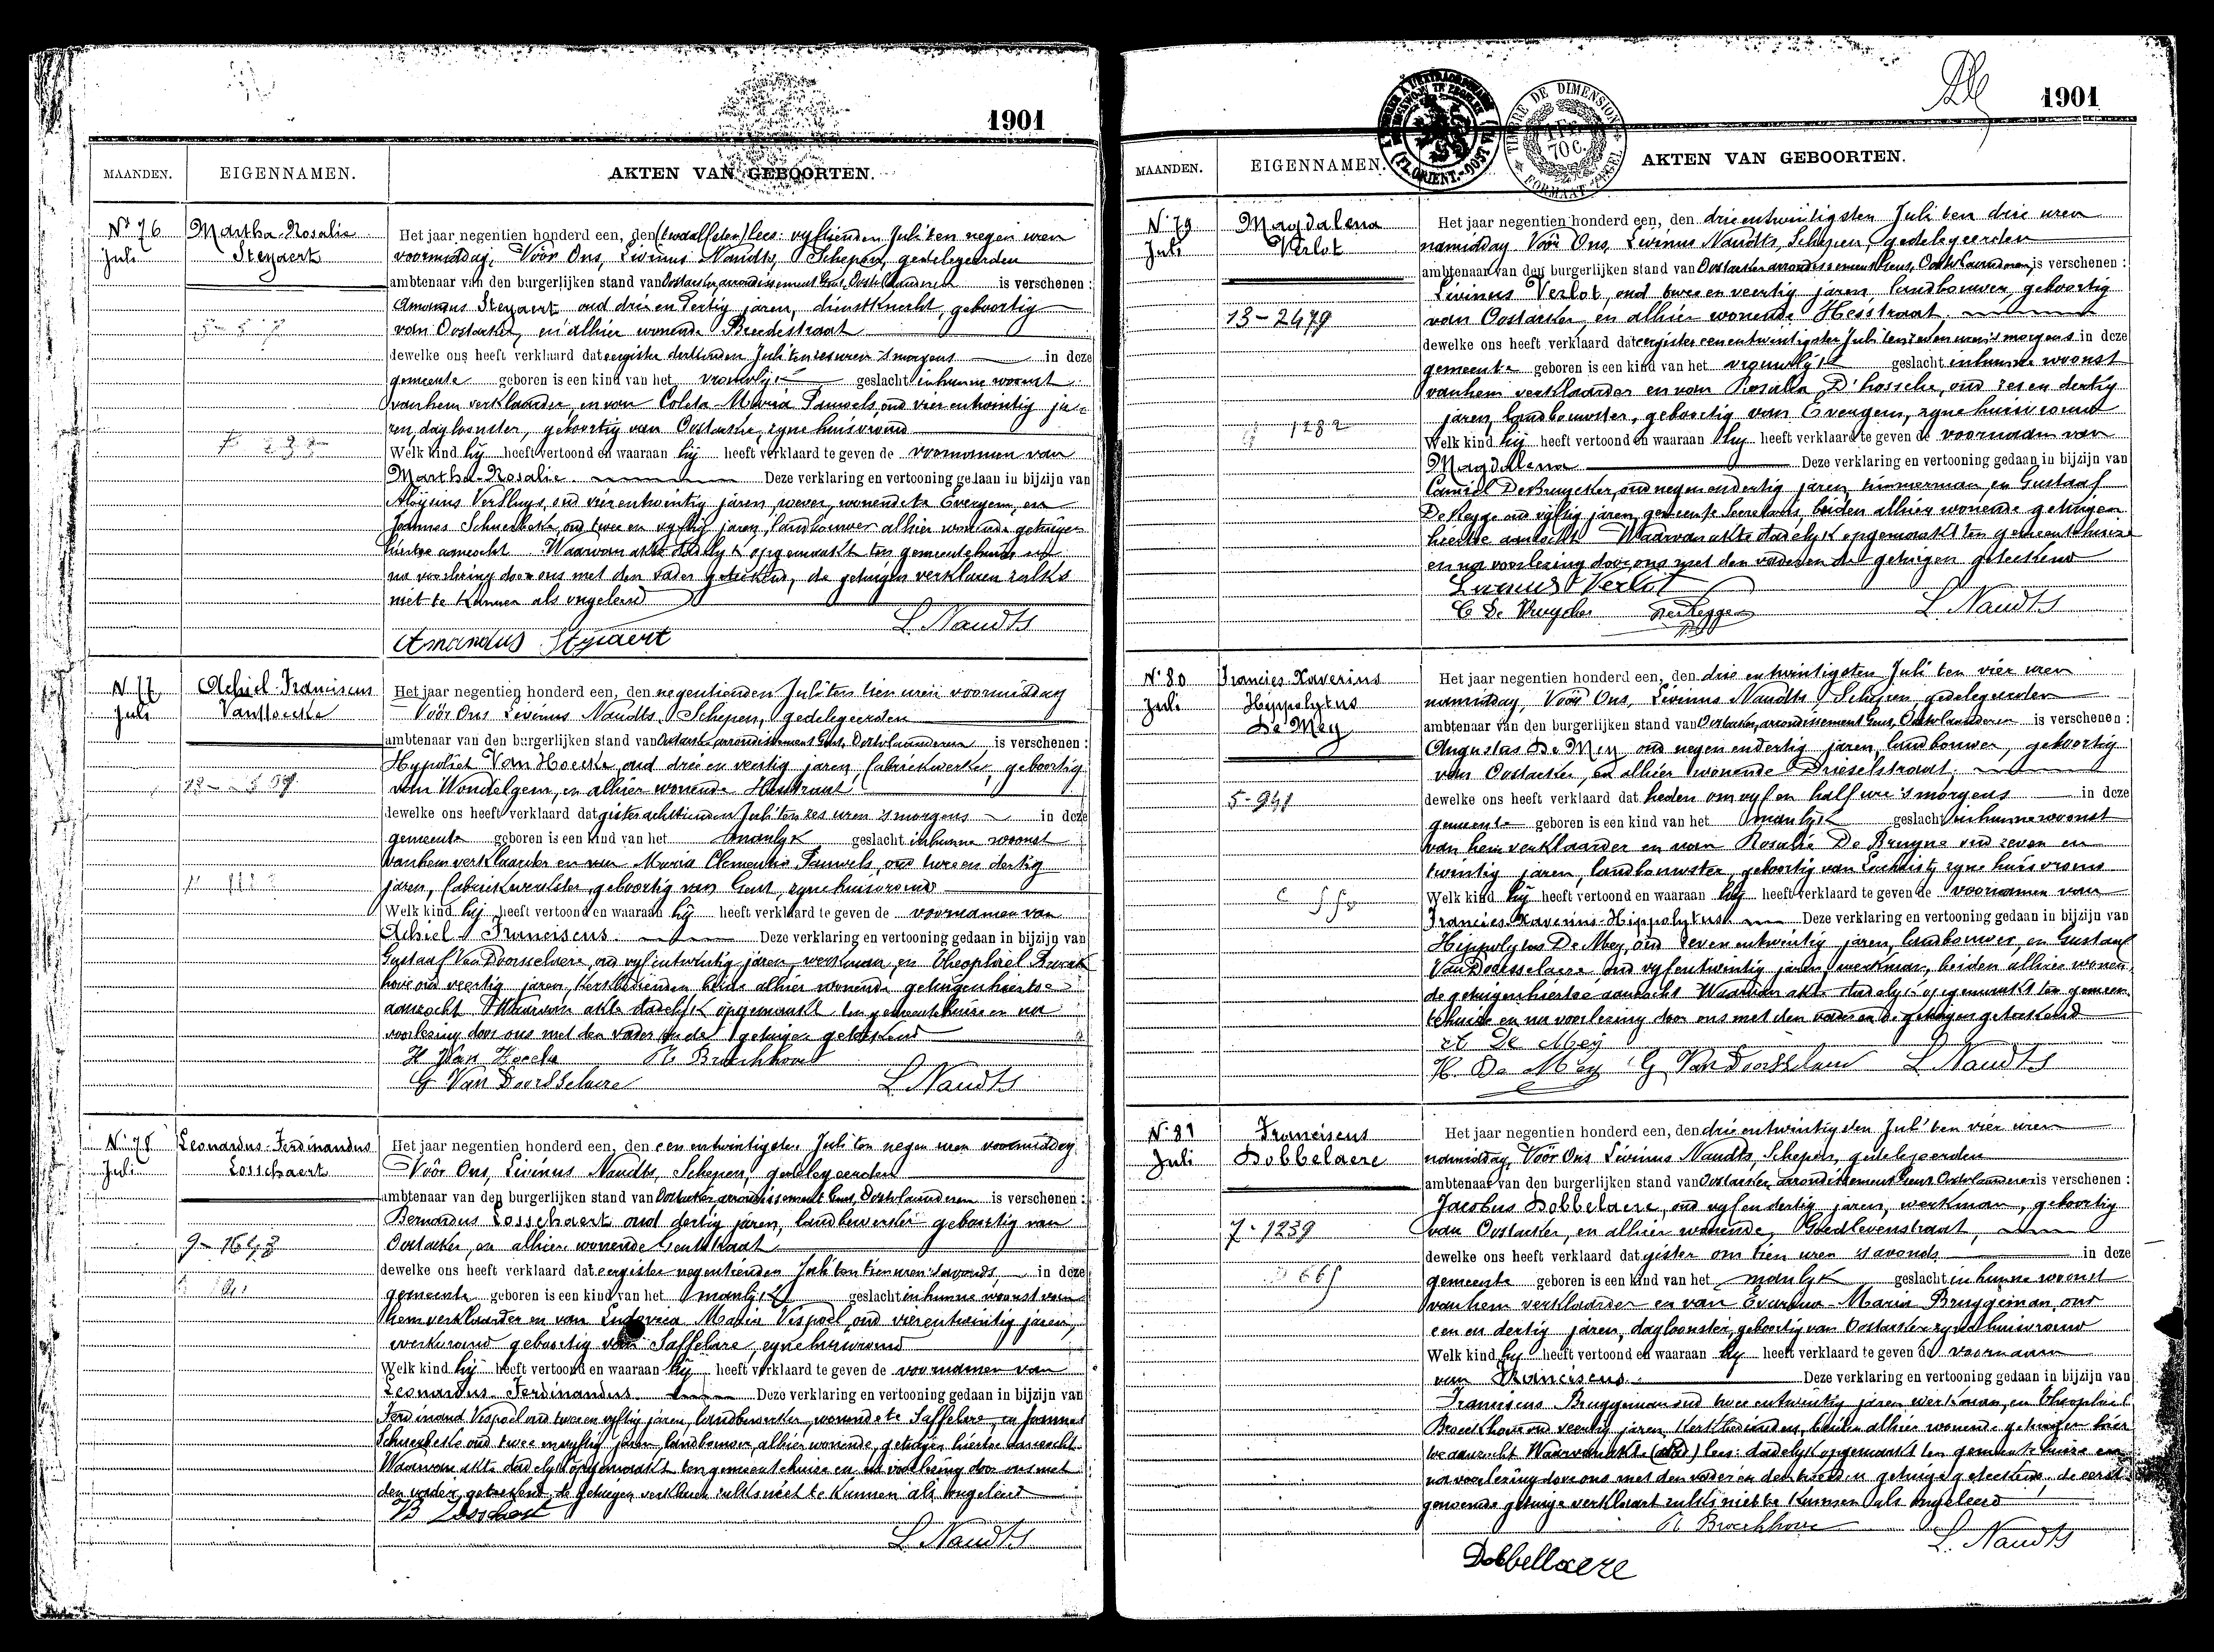 1901
MAANDEN.
EIGENNAMEN.
AKTEN VAN GEBOORTEN.
Nº 76
Juli
Martha-Rosalie
Steyaert
Het jaar negentien honderd een, den (twaalfsten) lees: vyftienden Juli ten negen uren
voormiddag, Vóór Ons, Livinus Naudts, Schepen, gedelegeerden
ambtenaar van den burgerlijken stand van Oostacker, arrondissement Gent, Oostvlaanderen is verschenen:
Amandus Steyaert, oud drie en dertig jaren, dienstknecht, geboortig
van Oostacker, en alhier wonende Breedestraat
dewelke ons heeft verklaard dat eergister dertienden Juli ten zes uren 's morgens in deze
gemeente geboren is een kind van het vrouwlyk geslacht in hunne woonst
van hem verklaarder, en van Coleta-Maria Pauwels, oud vier entwintig ja-
ren, dagloonster, geboortig van Oostacker, zyne huisvrouw
Welk kind hij heeft vertoond en waaraan hij heeft verklaard te geven de voornamen van
Martha-Rosalie. Deze verklaring en vertooning gedaan in bijzijn van
Aloÿsius Versluys, oud vierentwintig jaren, wever, wonende te Evergem, en
Joannes Schuerbeke, oud twee en vyftig jaren, landbouwer alhier wonende getuigen
hiertoe aanzocht. Waarvan akte dadelyk opgemaakt ten gemeentehuize en
na voorlezing door ons met den vader geteekend, de getuigen verklaren zulks
niet te kunnen als ongeleerd
L. Naudts
Amandus Styaert
N 77
Juli
Achiel-Franciscus
VanHoecke
Het jaar negentien honderd een, den negentienden Juli ten tien uren voormiddag
Vóór Ons Livinus Naudts, Schepen, gedelegeerden
ambtenaar van den burgerlijken stand van Oostacker, arrondissement Gent, Oostvlaanderen is verschenen:
Hypoliet Van Hoecke, oud drie en veertig jaren, fabriekwerker, geboortig
van Wondelgem, en alhier wonende Hesstraat
dewelke ons heeft verklaard dat gister achttienden Juli ten zes uren 's morgens in deze
gemeente geboren is een kind van het manlyk geslacht in hunne woonst
van hem verklaarder en van Maria Clementia Pauwels, oud twee en dertig
jaren, fabriekwerkster, geboortig van Gent, zyne huisvrouw
Welk kind hij heeft vertoond en waaraan hij heeft verklaard te geven de voornamen van
Achiel Franciscus. Deze verklaring en vertooning gedaan in bijzijn van
Gustaaf Van Doorsselaere, oud vyfentwintig jaren, werkman, en Theophiel Broeck
hove oud veertig jaren, kerkbedienden beide alhier wonende getuigen hiertoe
aanzocht Waarvan akte dadelyk opgemaakt ten gemeentehuize en na
voorlezing door ons met den vader en de getuigen geteekend
H Van Hoecke
T. Broeckhove
G Van Doorsselaere
L. Naudts
Nº 78
Juli
Leonardus-Ferdinandus
Losschaert
9-1643
Het jaar negentien honderd een, den een entwintigsten Juli ten negen uren voormiddag
Vóór Ons, Livinus Naudts, Schepen, gedelegeerden
ambtenaar van den burgerlijken stand van Oostacker, arrondissement Gent, Oostvlaanderen is verschenen:
Bernardus Losschaert oud dertig jaren, landbewerker geboortig van
Oostacker, en alhier wonende Gentstraat
dewelke ons heeft verklaard dat eergister negentienden Juli ten tien uren 's avonds, in deze
gemeente geboren is een kind van het manlijk geslacht in hunne woonst van
hem verklaarder en van Ludovica Maria Vispoel, oud vierentwintig jaren,
werkvrouw geboortig van Saffelare, zyne huisvrouw
Welk kind hij heeft vertoond en waaraan hij heeft verklaard te geven de voornamen van
Leonardus Ferdinandus. Deze verklaring en vertooning gedaan in bijzijn van
Ferdinand Vispoel oud twee en vyftig jaren, landbewerker, wonende te Saffelare, en Joannes
Schuerbeke oud twee en vyftig jaren, landbouwer, alhier wonende, getuigen hiertoe aanzocht
Waarvan akte dadelyk opgemaakt ten gemeentehuize en na voorlezing door ons met
den vader geteekend, de getuigen verklaren zulks niet te kunnen als ongeleerd
B Losschaert
L. Naudts
1901
TIMBRE DE DIMENSION
1 FR.
70 C.
FORMAAT ZEGEL
MAANDEN.
EIGENNAMEN.
AKTEN VAN GEBOORTEN.
Nº 79
Juli
Magdalena
Verlot
13-2479
1282
Het jaar negentien honderd een, den drie entwintigsten Juli ten drie uren
namiddag Vóór Ons, Livinus Naudts, Schepen, gedelegeerden
ambtenaar van den burgerlijken stand van Oostacker arrondissement Gent, Oostvlaanderen, is verschenen:
Livinus Verlot, oud twee en veertig jaren, landbouwer, geboortig
van Oostacker, en alhier wonende Hesstraat.
dewelke ons heeft verklaard dat eergister een entwintigsten Juli ten zeven uren 's morgens in deze
gemeente geboren is een kind van het vrouwlijk geslacht in hunne woonst
van hem verklaarder en van Rosalia D'hossche, oud zes en dertig
jaren, landbouwster, geboortig van Evergem, zyne huisvrouw
Welk kind hij heeft vertoond en waaraan hy heeft verklaard te geven de voornaam van
Magdalena Deze verklaring en vertooning gedaan in bijzijn van
Camiel DeBruycker, oud negen en dertig jaren, timmerman, en Gustaaf
De Regge oud vijftig jaren, gemeente secretaris, beiden alhier wonende getuigen
hiertoe aanzocht Waarvan akte dadelyk opgemaakt ten gemeentehuize
en na voorlezing door ons met den vader en de getuigen geteekend
Livinus Verlot
C De Bruycker
L. Naudts
Nº 80
Juli
Francies-Xaverius
Hippolytus
De Mey
5-941
Het jaar negentien honderd een, den drie entwintigsten Juli ten vier uren
namiddag, Vóór Ons, Livinus Naudts, Schepen, gedelegeerden
ambtenaar van den burgerlijken stand van Oostacker, arrondissement Gent, Oostvlaanderen is verschenen:
Augustus De Mey, oud negen endertig jaren, landbouwer, geboortig
van Oostacker, en alhier wonende Drieselstraat.
dewelke ons heeft verklaard dat heden om vyf en half ure 's morgens in deze
gemeente geboren is een kind van het manlyk geslacht in hunne woonst
van hem verklaarder en van Rosalie De Bruyne oud zeven en
twintig jaren, landbouwster, geboortig van Lochristy zyne huisvrouw
Welk kind hij heeft vertoond en waaraan hij heeft verklaard te geven de voornamen van
Francies-Xaverius-Hippolytus Deze verklaring en vertooning gedaan in bijzijn van
Hippolytus De Mey, oud zeven entwintig jaren, landbouwer, en Gustaaf
VanDoorsselaere oud vyfentwintig jaren, werkman, beiden alhier wonen
de getuigen hiertoe aanzocht Waarvan akte dadelyk opgemaakt ten gemeen
tehuize en na voorlezing door ons met den vader en de getuigen geteekend
A De Mey
H. De Mey
G VanDoorsselaere
L. Naudts
Nº 81
Juli
Franciscus
Dobbelaere
7-1239
Het jaar negentien honderd een, den drie entwintigsten Juli ten vier uren
namiddag, Vóór Ons Livinus Naudts, Schepen, gedelegeerden
ambtenaar van den burgerlijken stand van Oostacker, arrondissement Gent Oostvlaanderen is verschenen:
Jacobus Dobbelaere, oud vyf en dertig jaren, werkman, geboortig
van Oostacker, en alhier wonende, Goedlevenstraat,
dewelke ons heeft verklaard dat gister om tien uren 's avonds in deze
gemeente geboren is een kind van het manlyk geslacht in hunne woonst
van hem verklaarder en van Maria Bruggeman, oud
een en dertig jaren, dagloonster, geboortig van Oostacker zyne huisvrouw
Welk kind hy heeft vertoond en waaraan hy heeft verklaard te geven de voornaam
van Franciscus. Deze verklaring en vertooning gedaan in bijzijn van
Franciscus Bruggeman oud twee entwintig jaren werkman, en Theophiel
Broeckhove oud veertig jaren, kerkbedienden, beiden alhier wonende getuigen hier
toe aanzocht Waarvan akte lees: dadelyk opgemaakt ten gemeentehuize en
na voorlezing door ons met den vader en den tweeden getuige geteekend, de eerst
genoemde getuige verklaart zulks niet te kunnen als ongeleerd
T. Broeckhove
L. Naudts
Dobbellaere